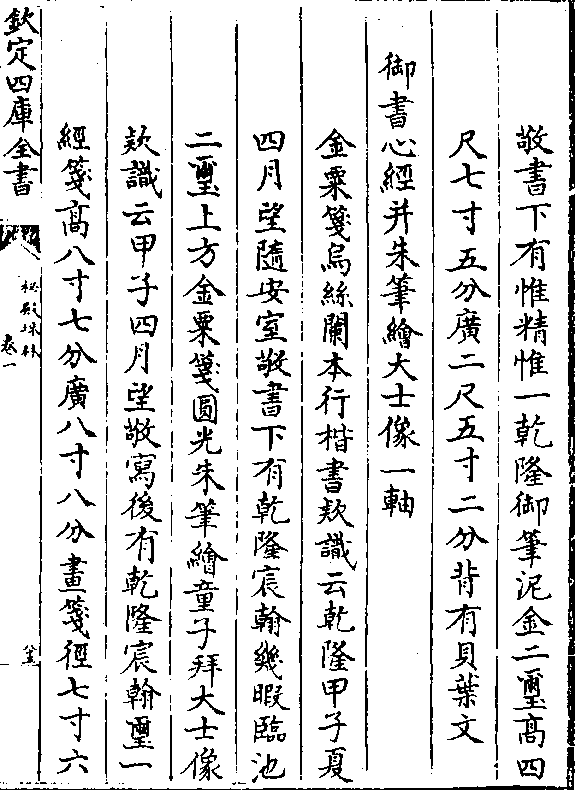 敬書下有惟精惟一乾隆御筆泥金二璽高四
尺七寸五分廣二尺五寸二分背有貝葉文
御書心經并朱筆繪大士像一軸
金粟箋烏絲闌本行楷書款識云乾隆甲子夏
四月望隨安室敬書下有乾隆宸翰幾暇臨池
二璽上方金粟箋圓光朱筆繪童子拜大士像
款識云甲子四月望敬寫後有乾隆宸翰璽一
經箋高八寸七分廣八寸八分畫箋徑七寸六
欽定四庫全書
秘殿珠林
卷一